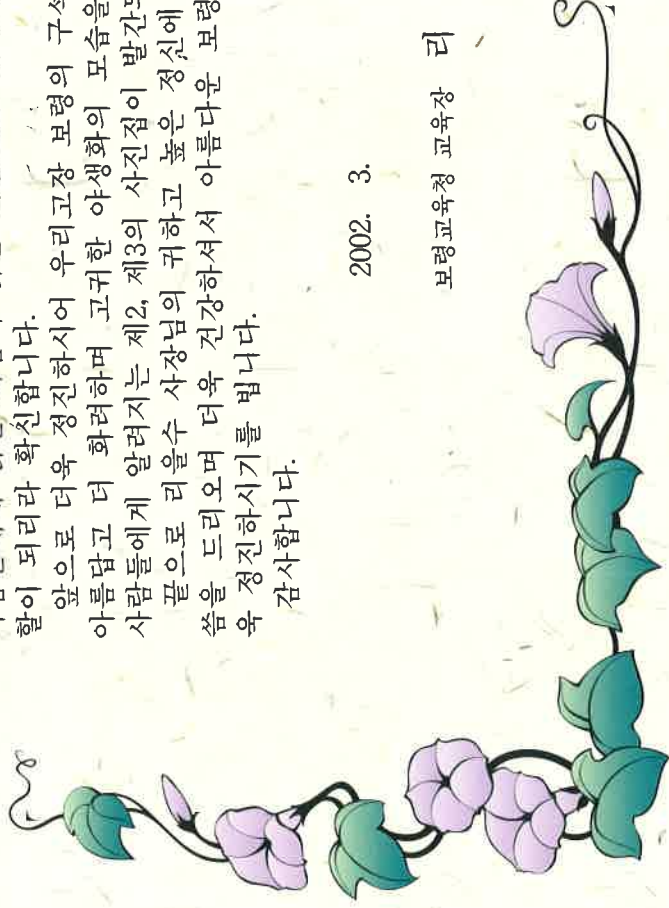 할이 되리라 확신합니다.
앞으로 더욱 정진하시어 우리고장 보령의
아름답고 더 화려하며 고귀한 야생화의 모습을
사람들에게 알려지는 제2, 제3의 사진집이
끝으로 리을수 사장님의 귀하고 높은 정신에
씀을 드리오며 더욱 건강하셔서 아름다운 보령
욱 정진하시기를 빕니다.
감사합니다.
2002. 3.
보령교육청 교육장 리